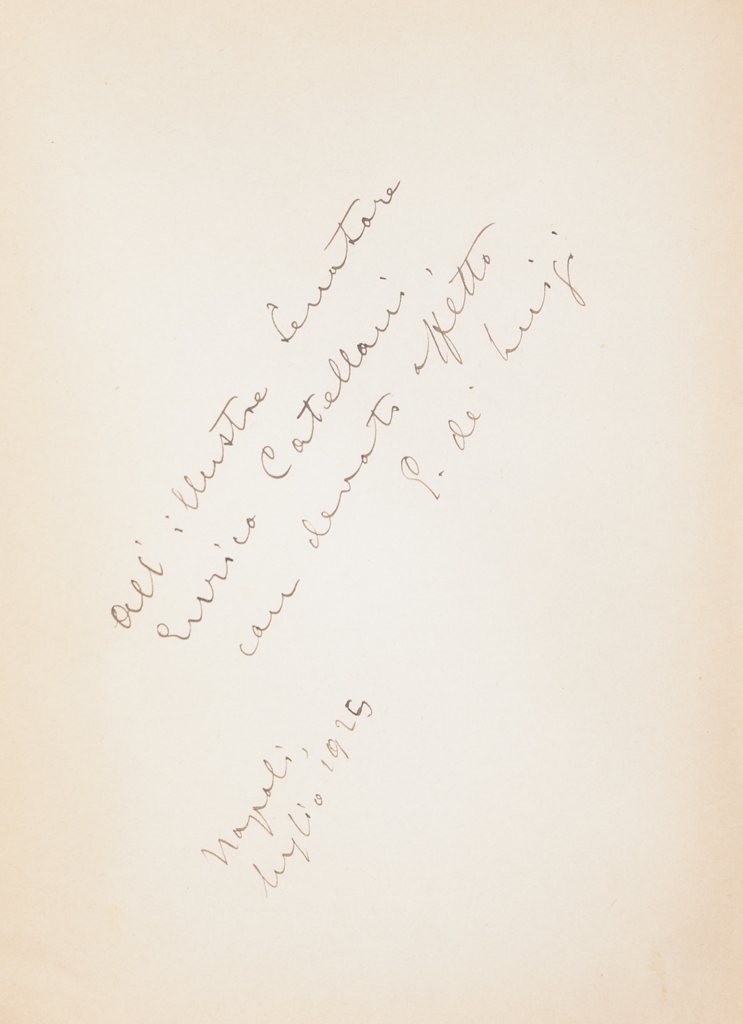 All' illustre Senatore
Enrico Catellani,
con devoto affetto
G. de Luigi
Napoli,
luglio 1925